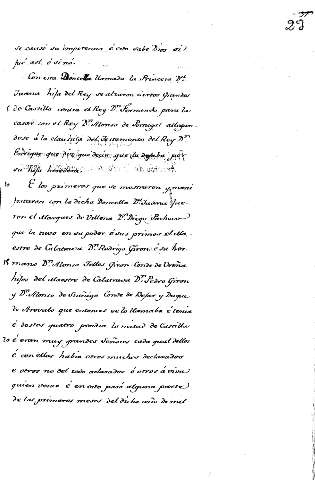 23
se causó su impotencia ó esto sabe Dios si
fué así, ó si nó.
Con esta Doncella llamada la Princesa Dª
Juana hija del Rey se alzaron ciertos Grandes
de Castilla contra el Rey Dn Fernando para la
casar con el Rey Dn Alonso de Portugal allegan
dose á la clausula del Testamento del Rey Dn
Enrique que dice que decia, que la dejaba por
su hija heredera.
10 E los primeros que se mostraron y mani
festaron con la dicha Doncella Dª Juana fue
ron el Marques de Villena Dn Diego Pacheco
que la tuvo en su poder é sus primos el Ma
estre de Calatrava Dn Rodrigo Giron é su her
15 mano Dn Alonso Tellez Giron Conde de Ureña
hijos del Maestre de Calatrava Dn Pedro Giron
y Dn Alonso de Conde de Bejar y Duque
de Arevalo que entonces se lo llamaba é tenia
é destos quatro pendia la mitad de Castilla
20 é eran muy grandes Señores cada qual dellos
é con ellos habia otros muchos declarados
e otros no del todo aclarados é otros á viva
quien vence é en esto pasó alguna parte
de los primeros meses del dicho año de mil